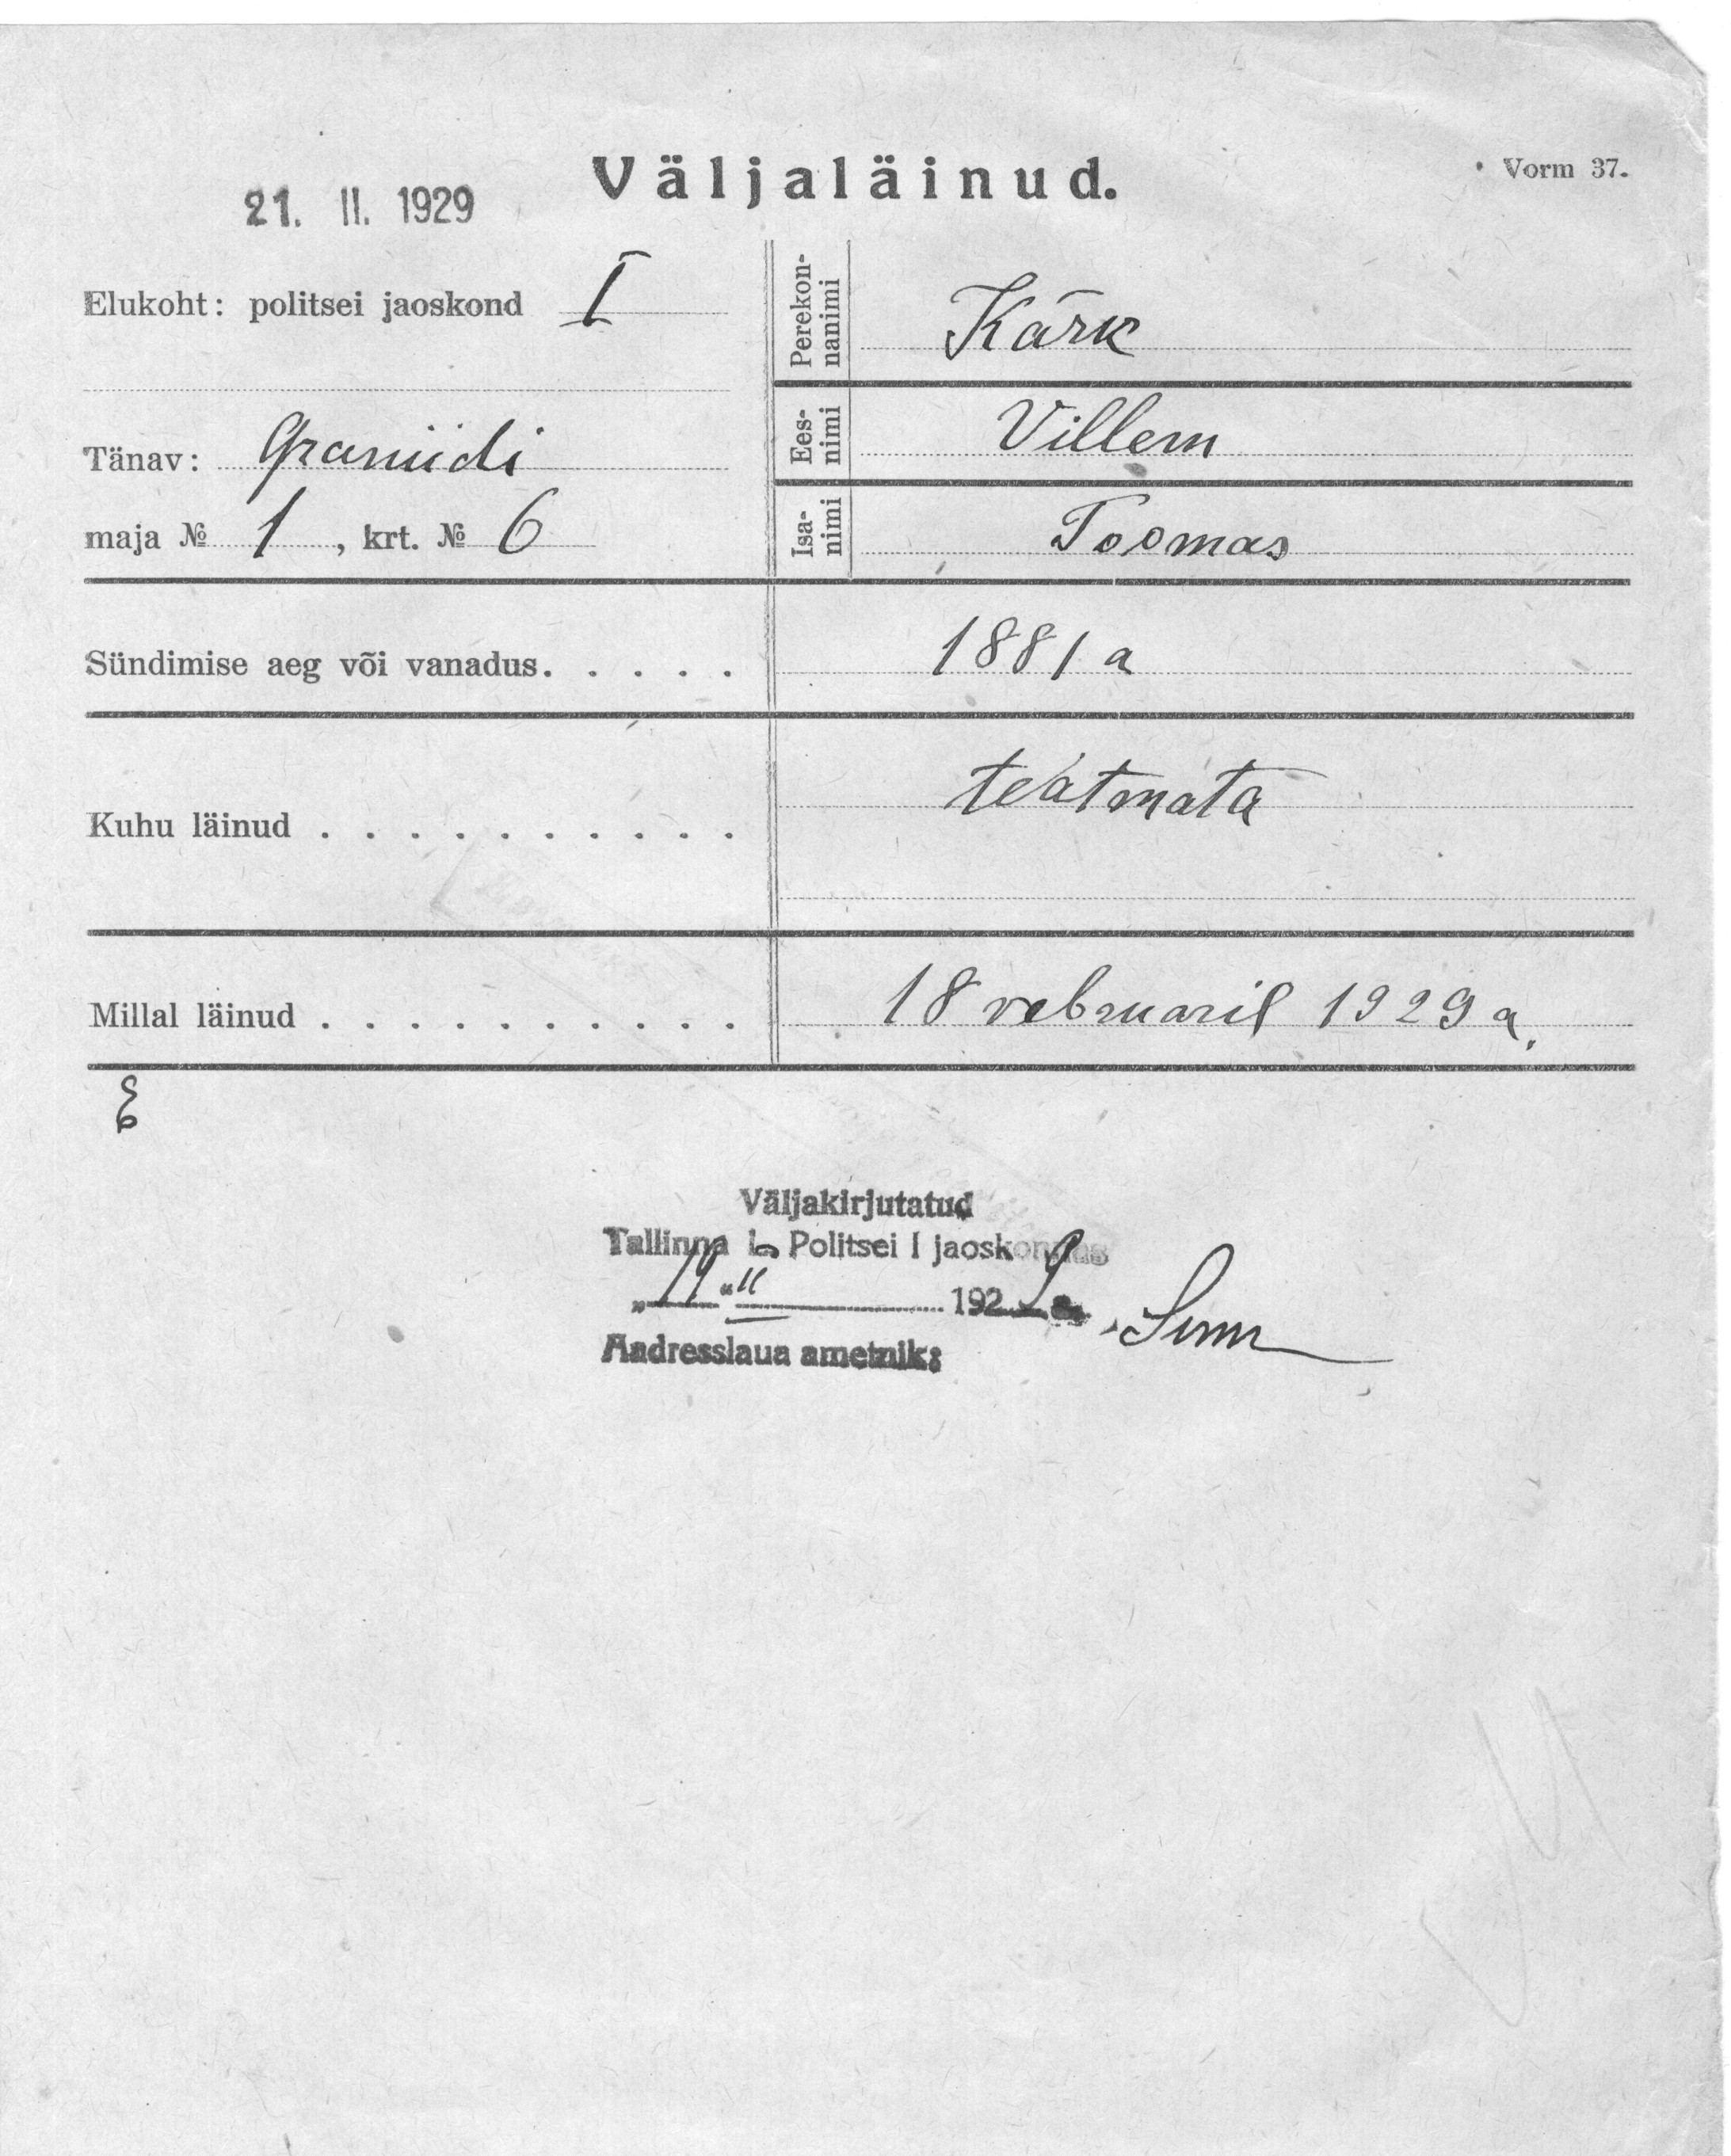 Väljaläinud.
Vorm 37.
21. II. 1929
Elukoht: politsei jaoskond I
Tänav: Graniidi
maja № 1, krt. № 6
Perekon-
nanimi
Kärk
Ees-
nimi
Villem
Isa-
nimi
Toomas
Sündimise aeg või vanadus. . . . . . 1881 a
Kuhu läinud . . . . . . . . . . teatmata
Millal läinud . . . . . . . . . . 18 vebruaril 1929 a.
Väljakirjutatud
Tallinna Politsei I jaoskonnas
„19" II 1929 a.
Aadresslaua ametnik: